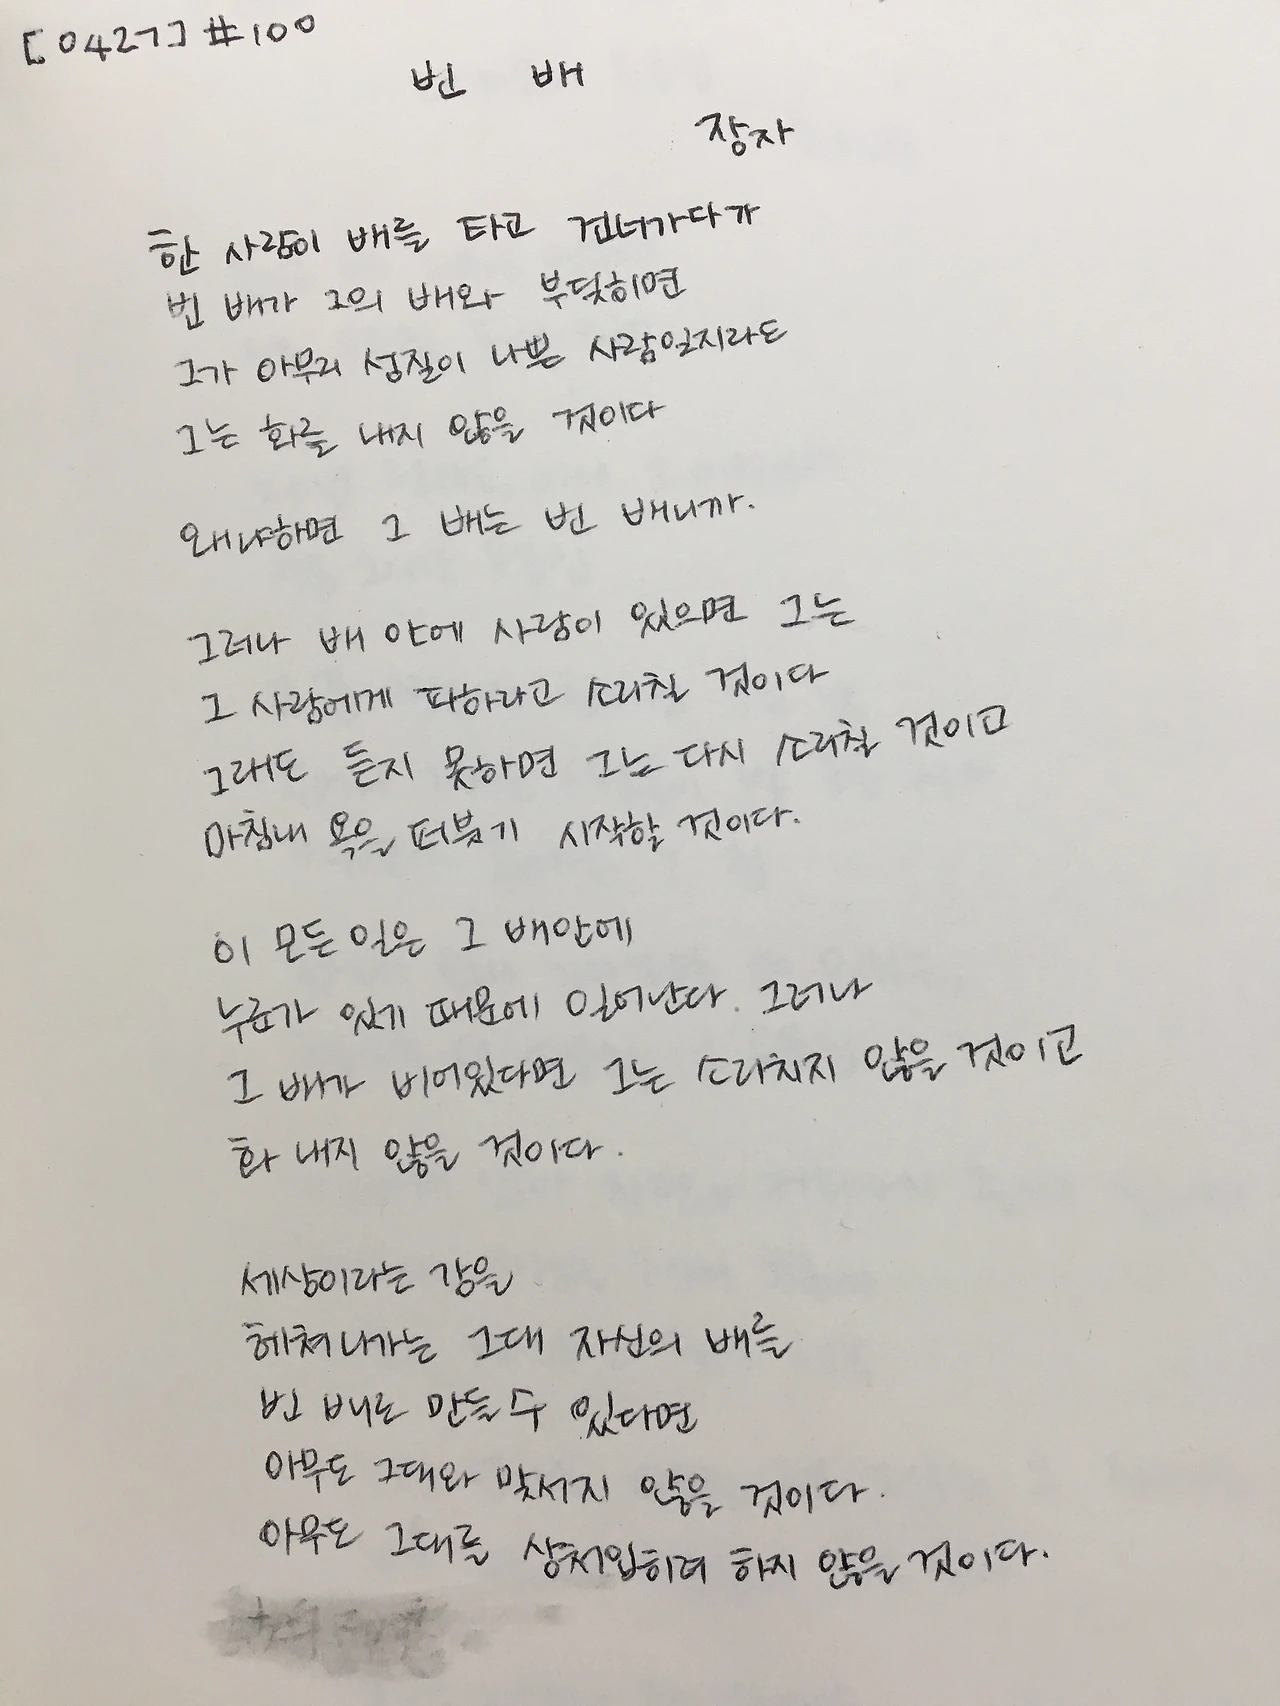 [0427] #100
빈 배
장자
한 사람이 배를 타고 건너가다가
빈 배가 그의 배와 부딪히면
그가 아무리 성질이 나쁜 사람일지라도
그는 화를 내지 않을 것이다
왜냐하면 그 배는 빈 배니까.
그러나 배 안에 사람이 있으면 그는
그 사람에게 피하라고 소리칠 것이다
그래도 듣지 못하면 그는 다시 소리칠 것이고
마침내 욕을 퍼붓기 시작할 것이다.
이 모든 일은 그 배안에
누군가 있기 때문에 일어난다. 그러나
그 배가 비어있다면 그는 소리치지 않을 것이고
화 내지 않을 것이다.
세상이라는 강을
헤쳐나가는 그대 자신의 배를
빈 배로 만들 수 있다면
아무도 그대와 맞서지 않을 것이다.
아무도 그대를 상처입히려 하지 않을 것이다.